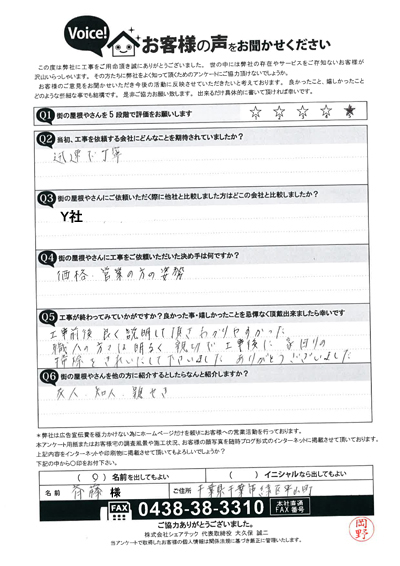 Voice!
お客様の声をお聞かせください
この度は弊社に工事をご用命頂き誠にありがとうございました。世の中には弊社の存在やサービスをご存知ないお客様が
沢山いらっしゃいます。その方たちに弊社をよく知って頂くためのアンケートにご協力頂けないでしょうか。
お客様のご意見をお聞かせいただき今後の活動に反映させていただきたいと考えております。良かったこと、嬉しかったこと
どのような些細な事でも結構です。是非ご協力お願い致します。出来るだけ具体的に書いて頂ければ幸いです。
Q1 街の屋根やさんを5段階で評価をお願いします ☆ ☆ ☆ ☆ ★
Q2 当初、工事を依頼する会社にどんなことを期待されていましたか?
迅速で丁寧
Q3 街の屋根やさんにご依頼いただく際に他社と比較しました方はどこの会社と比較しましたか?
Y社
Q4 街の屋根やさんに工事をご依頼いただいた決め手は何ですか?
価格、営業の方の姿勢
Q5 工事が終わってみていかがですか?良かった事・嬉しかったことを忌憚なく頂戴出来ましたら幸いです
工事前後良く説明して頂きわかりやすかった
職人の方々は明るく親切で工事後に家回りの
掃除をきれいにして下さいました ありがとうございました
Q6 街の屋根やさんを他の方に紹介するとしたらなんと紹介しますか?
友人、知人、親せき
＊弊社は広告宣伝費を極力かけない為にホームページだけを頼りにお客様への営業活動を行っております。
本アンケート用紙またはお客様宅の調査風景や施工状況、お客様の顔写真を随時ブログ形式のインターネットに掲載させて頂いております。
上記内容をインターネットや印刷物に掲載させて頂いてもよろしいでしょうか?
下記の中から〇印をお付下さい。
(〇)名前を出してもよい ( )イニシャルなら出してもよい
名前 斉藤 様 ご住所 千葉県千葉市
FAX 0438-38-3310 本社直通 FAX番号
ご協力ありがとうございました。
株式会社シェアテック 代表取締役 大久保 誠二
当アンケートで取得したお客様の個人情報は関係法規に基づき厳正に管理いたします。
岡野